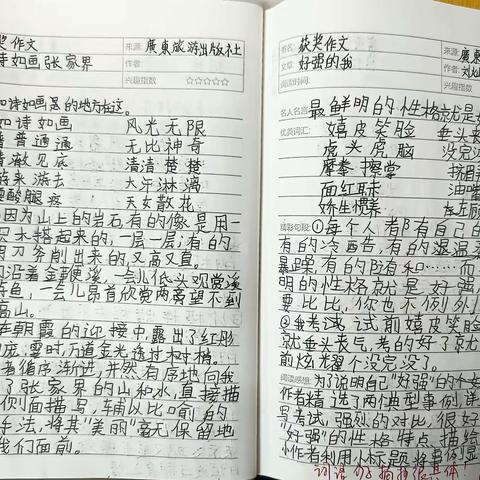 奖作文 来源:廣東旅游出版社
诗如画张家界 作者:
兴趣指数 ☆☆☆☆☆
如诗如画 风光无限
普普通通 无比神奇
清澈见底 清清楚楚
游来游去 大汗淋漓
腰酸腿疼 天女散花
因为山上的岩石,有的像是用一
层木搭起来的,一层一层;有的
用刀斧削出来的又高又直。
沿着金鞭溪,一会儿低头观赏溪
鱼,一会儿昂首欣赏两岸望不到
高山。
在朝霞的迎接中,露出了红彤
霎时,万道金光透过树梢。
者循序渐进,井然有序地向我
了张家界的山和水,直接描
侧面描写,辅以比喻的
手法,将其"美丽"毫无保留地
我们面前。
书名: 获奖作文 来源:廣東
文章: 好强的我 作者:刘
阅读时间: 兴趣指数
名人名言: 最鲜明的性格就是
优美词汇: 嬉皮笑脸 垂头
虎头虎脑 没完
摩拳擦掌
面红耳赤 油嘴
娇生惯养
精彩句段: ①每个人都有自己的
有的冷酷,有的温
暴躁,有的随和……而
明的性格就是好强
要比比,你也不例外
②我考试前嬉皮笑脸
就垂头丧气,考的好了就
前炫耀个没完没了。
阅读感想: 为了说明自己"好强"的个
作者精选了两个典型事例,详
写考试,强烈的对比,很好
"好强"的性格特点描绘
小作者利用小标题将事例